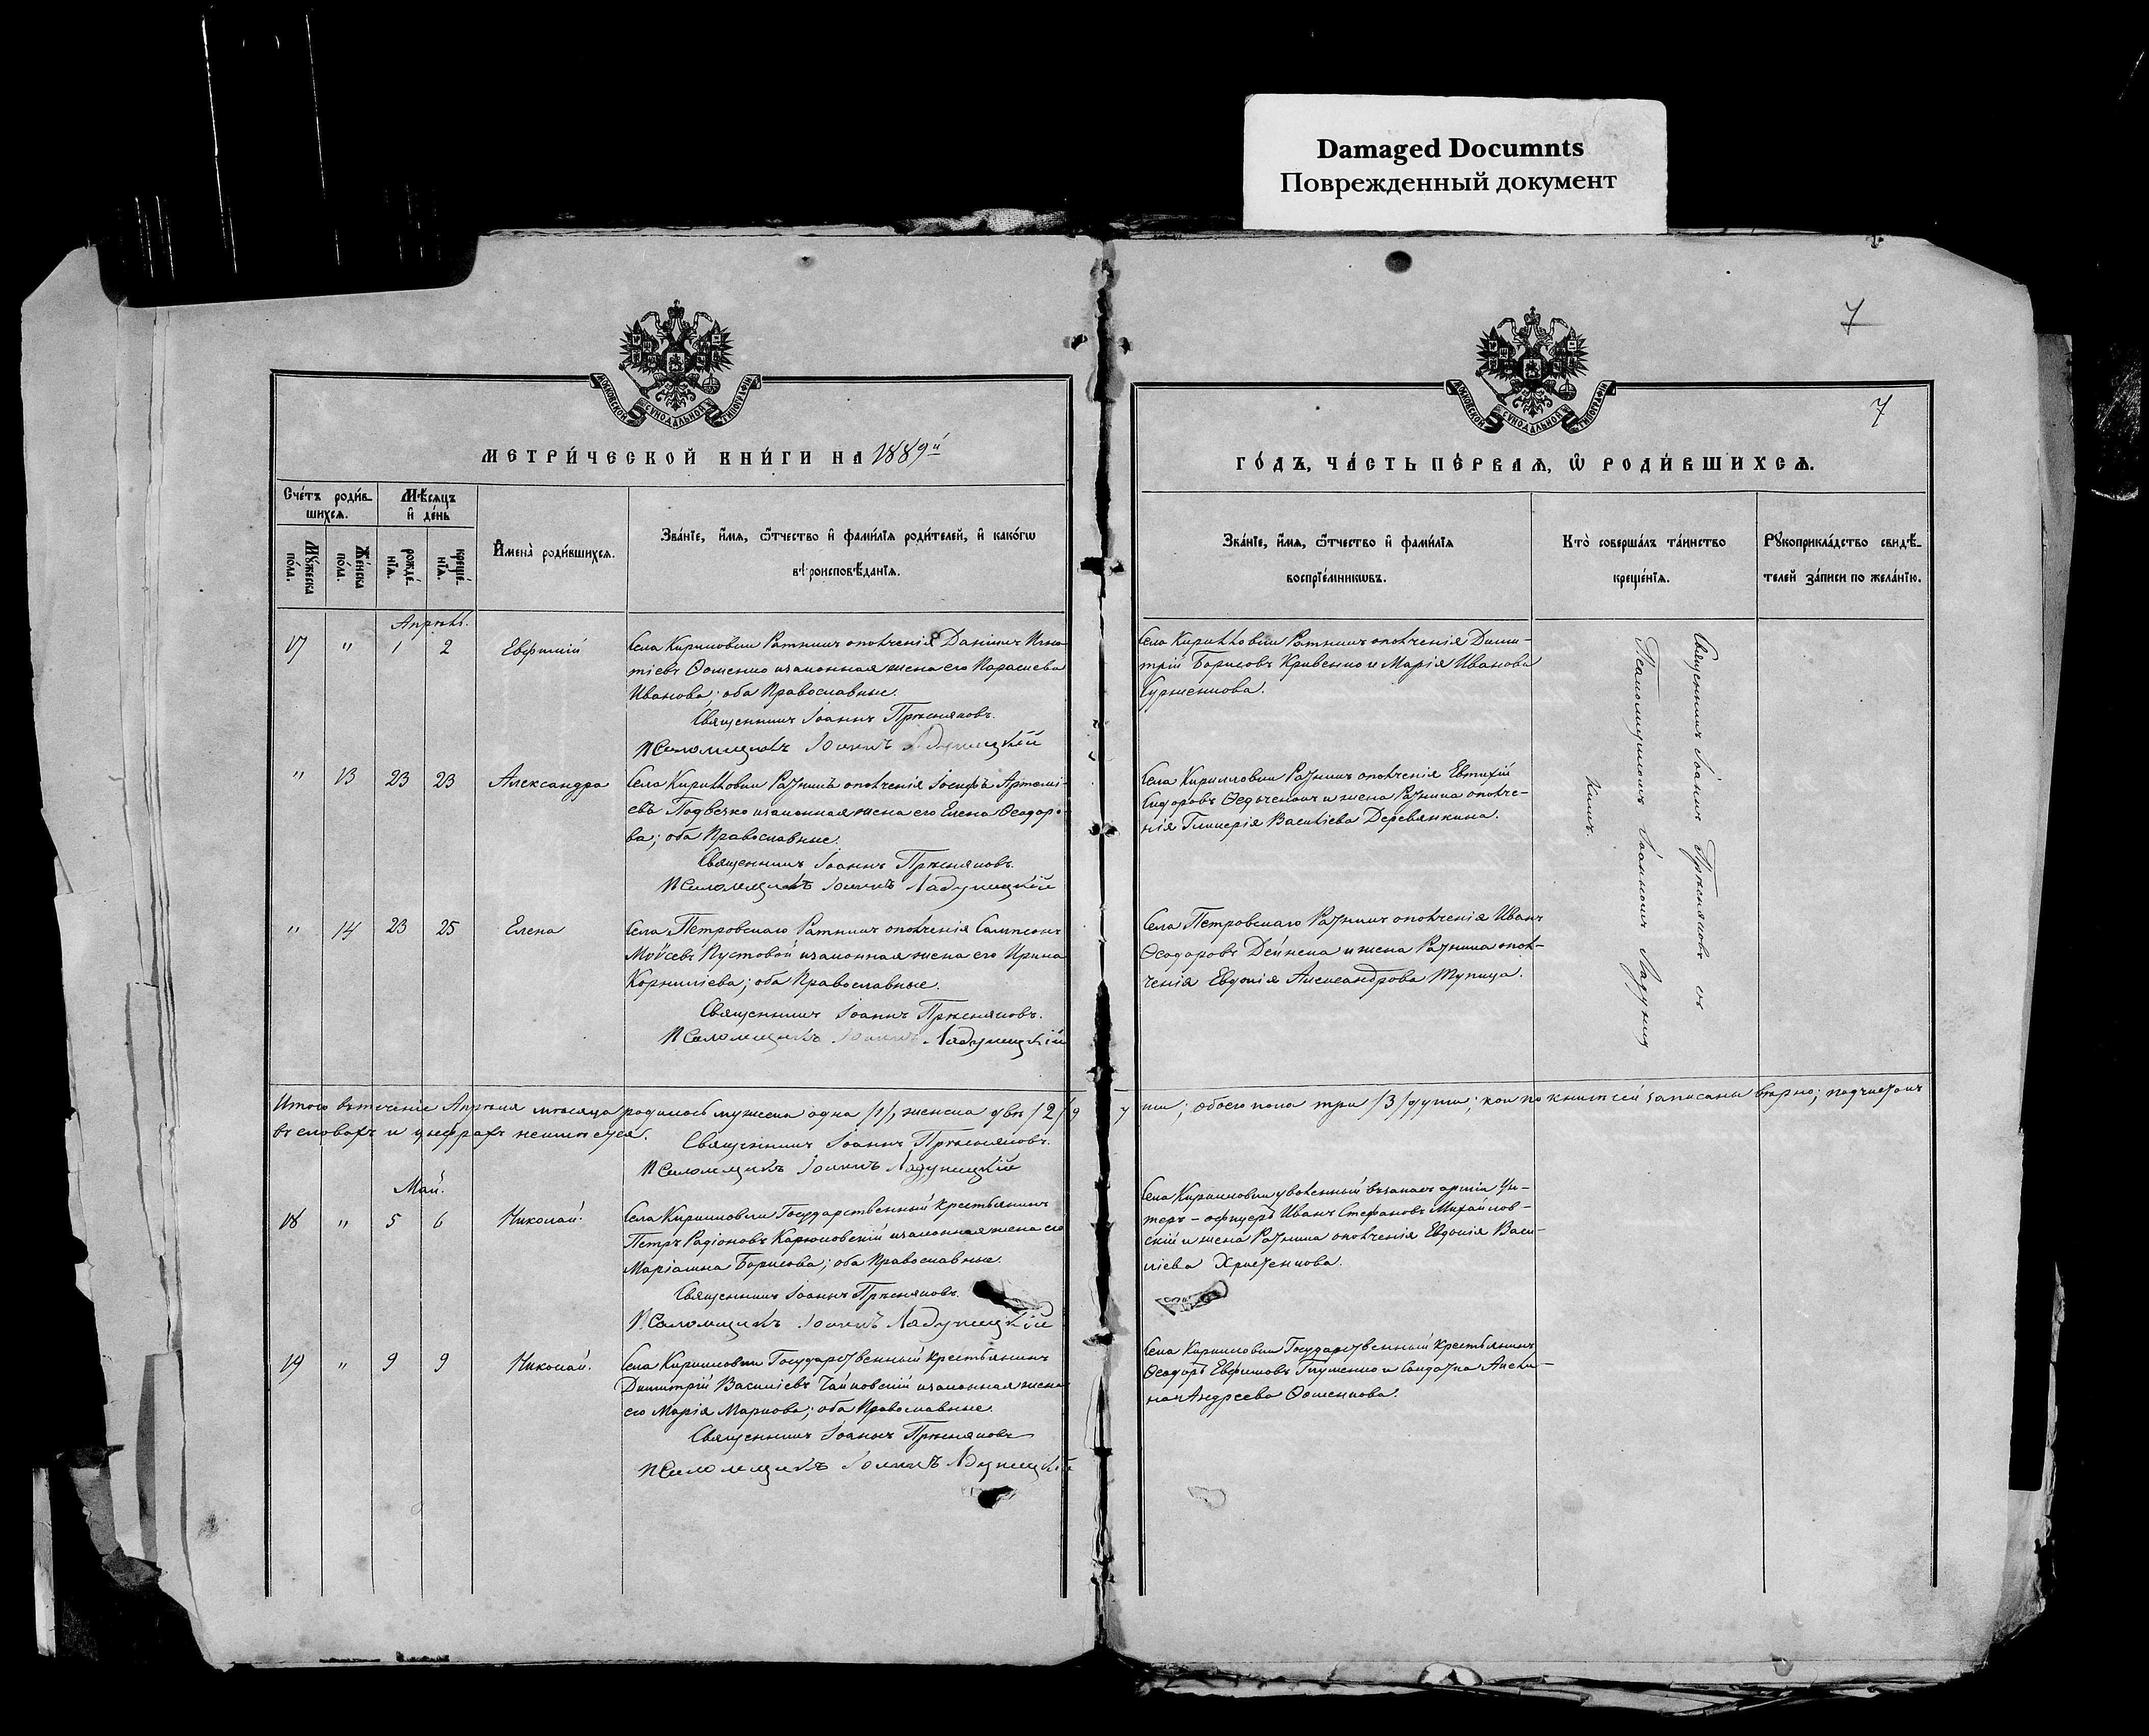 Damaged Documnts
Поврежденный документ
7
МОСКОВСКОЙ СѴНОДАЛЬНОЙ ТИПОГРАФІИ
МОСКОВСКОЙ СѴНОДАЛЬНОЙ ТИПОГРАФІИ
7
МЕТРИЧЕСКОЙ КНИГИ НА 1889й
ГОДЪ, ЧАСТЬ ПЕРВАЯ, Ѡ РОДИВШИХСЯ.
Счетъ родив-
шихся.
Мѣсяцъ
и день
Мужеска
пола.
Женска
пола.
рожде-
нія.
креще-
нія.
Имена родившихся.
Званіе, имя, ѿчество и фамилія родителей, и какогѡ
вѣроисповѣданія.
Званіе, имя, ѿчество и фамилія
воспріемникѡвъ.
Кто совершалъ таинство
крещенія.
Рукоприкладство свидѣ-
телей записи по желанію.
Апрѣль.
17 " 1 2 Евфимій
Села Кириловки Ратникъ ополченія Даніилъ Игна-
тіевъ Ѳоменко и законная жена его Параскева
Иванова; оба Православные.
Священникъ Іоаннъ Прѣсняковъ.
Псаломщикъ Іоаннъ Ладунецкій
Села Кирилловки Ратникъ ополченія Дими-
трій Борисовъ Кривенко и Марія Иванова
" 13 23 23 Александра
Села Кирилловки Ратникъ ополченія Іосифъ Артемі-
евъ Подвезко и законная жена его Елена Ѳеодоро-
ва; оба Православные.
Священникъ Іоаннъ Прѣсняковъ.
Псаломщикъ Іоаннъ Ладунецкій
Села Кирилловки Ратникъ ополченія Евтихій
Сидоровъ Ѳедченокъ и жена Ратника ополче-
нія Гликерія Васильева Деревянкина.
" 14 23 25 Елена
Села Петровскаго Ратникъ ополченія Сампсонъ
Моѵсевъ Пустовой и законная жена его Ирина
Корниліева; оба Православные.
Священникъ Іоаннъ Прѣсняковъ.
Псаломщикъ Іоаннъ Ладунецкій
Села Петровскаго Ратникъ ополченія Иванъ
Ѳеодоровъ Дейнека и жена Ратника опол-
ченія Евдокія Александрова Тупица.
Священникъ Іоаннъ Прѣсняковъ съ
Псаломщикомъ Іоанномъ Ладуниц
кимъ.
Итого въ теченіе Апрѣля мѣсяца родилось мужска одна /1/, женска двѣ /2/ ду
ши; обоего пола три /3/ души; кои по книгѣ сей записаны вѣрно; подчистокъ
въ словахъ и цыфрахъ неимѣется.
Священникъ Іоаннъ Прѣсняковъ.
Псаломщикъ Іоаннъ Ладунецкій
Май.
18 " 5 6 Николай.
Села Кирилловки Государственный крестьянинъ
Петръ Радіоновъ Карюковскій и законная жена его
Маріамна Борисова; оба Православные.
Священникъ Іоаннъ Прѣсняковъ.
Псаломщикъ Іоаннъ Ладунецкій
Села Кирилловки уволенный въ запасъ арміи Ун-
теръ-офицеръ Иванъ Стефановъ Михайлов-
скій и жена Ратника ополченія Евдокія Васи
ліева Христенкова.
19 " 9 9 Николай.
Села Кирилловки Государственный крестьянинъ
Димитрій Василіевъ Чайковскій и законная жена
его Марія Маркова; оба Православные.
Священникъ Іоаннъ Прѣсняковъ
Псаломщикъ Іоаннъ Ладунецкій
Села Кирилловки Государственный крестьянинъ
Ѳеодоръ Евфимовъ Глущенко и Солдатка
Андреева Ѳоменкова.